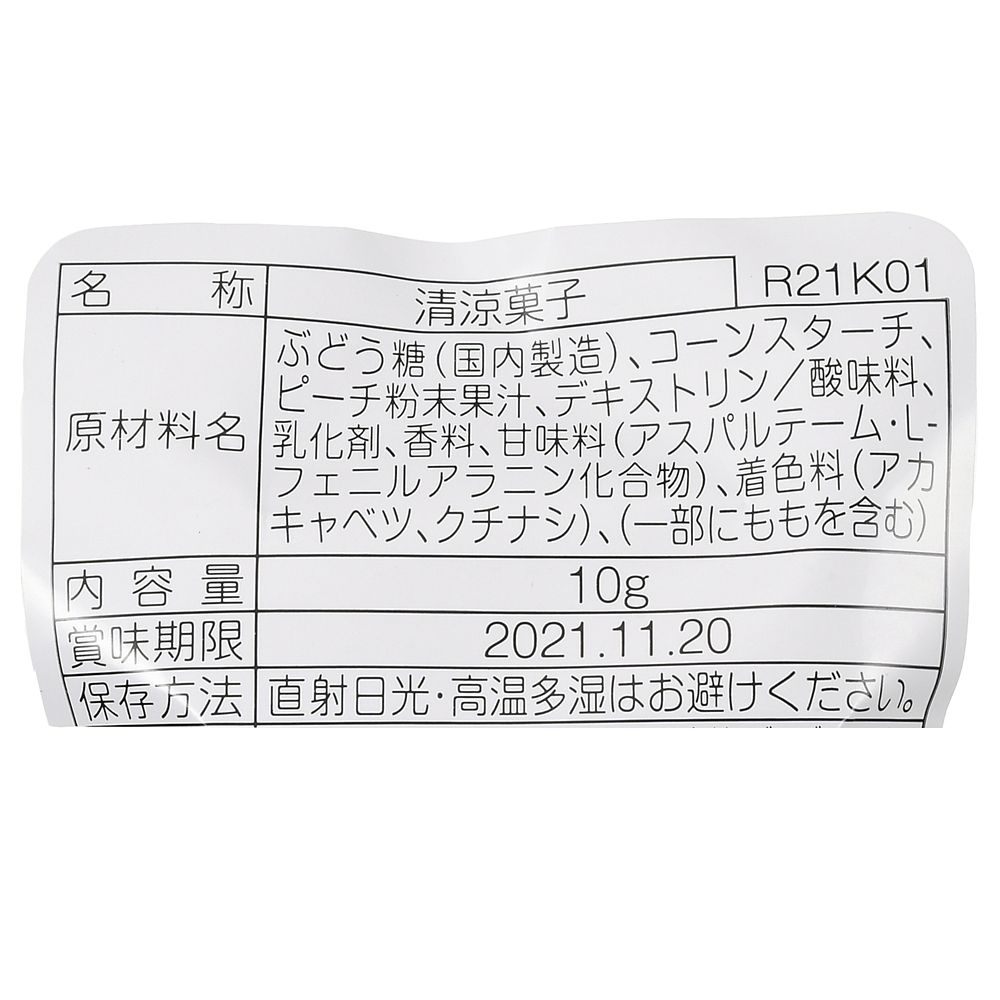 名称 清涼菓子 R21K01
原材料名 ぶどう糖(国内製造)、コーンスターチ、
ピーチ粉末果汁、デキストリン/酸味料、
乳化剤、香料、甘味料(アスパルテーム・L-
フェニルアラニン化合物)、着色料(アカ
キャベツ、クチナシ)、(一部にももを含む)
内容量 10g
賞味期限 2021.11.20
保存方法 直射日光・高温多湿はお避けください。